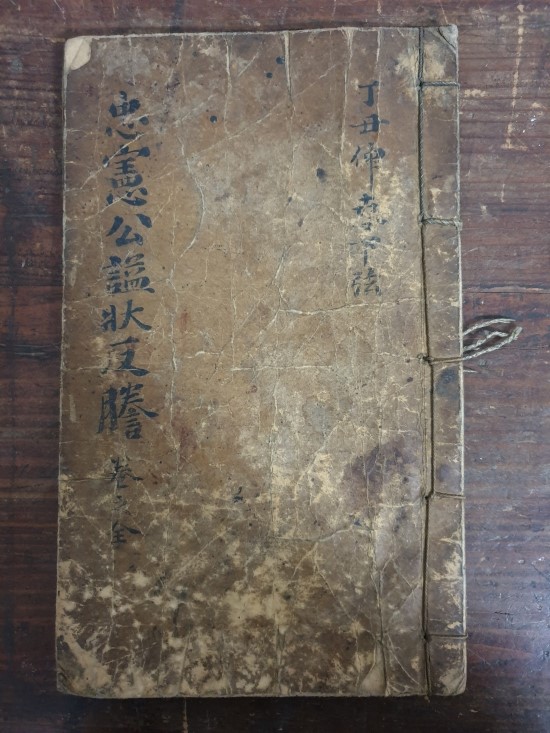 丁丑仲夏下弦
忠憲公謚狀及謄 卷之全